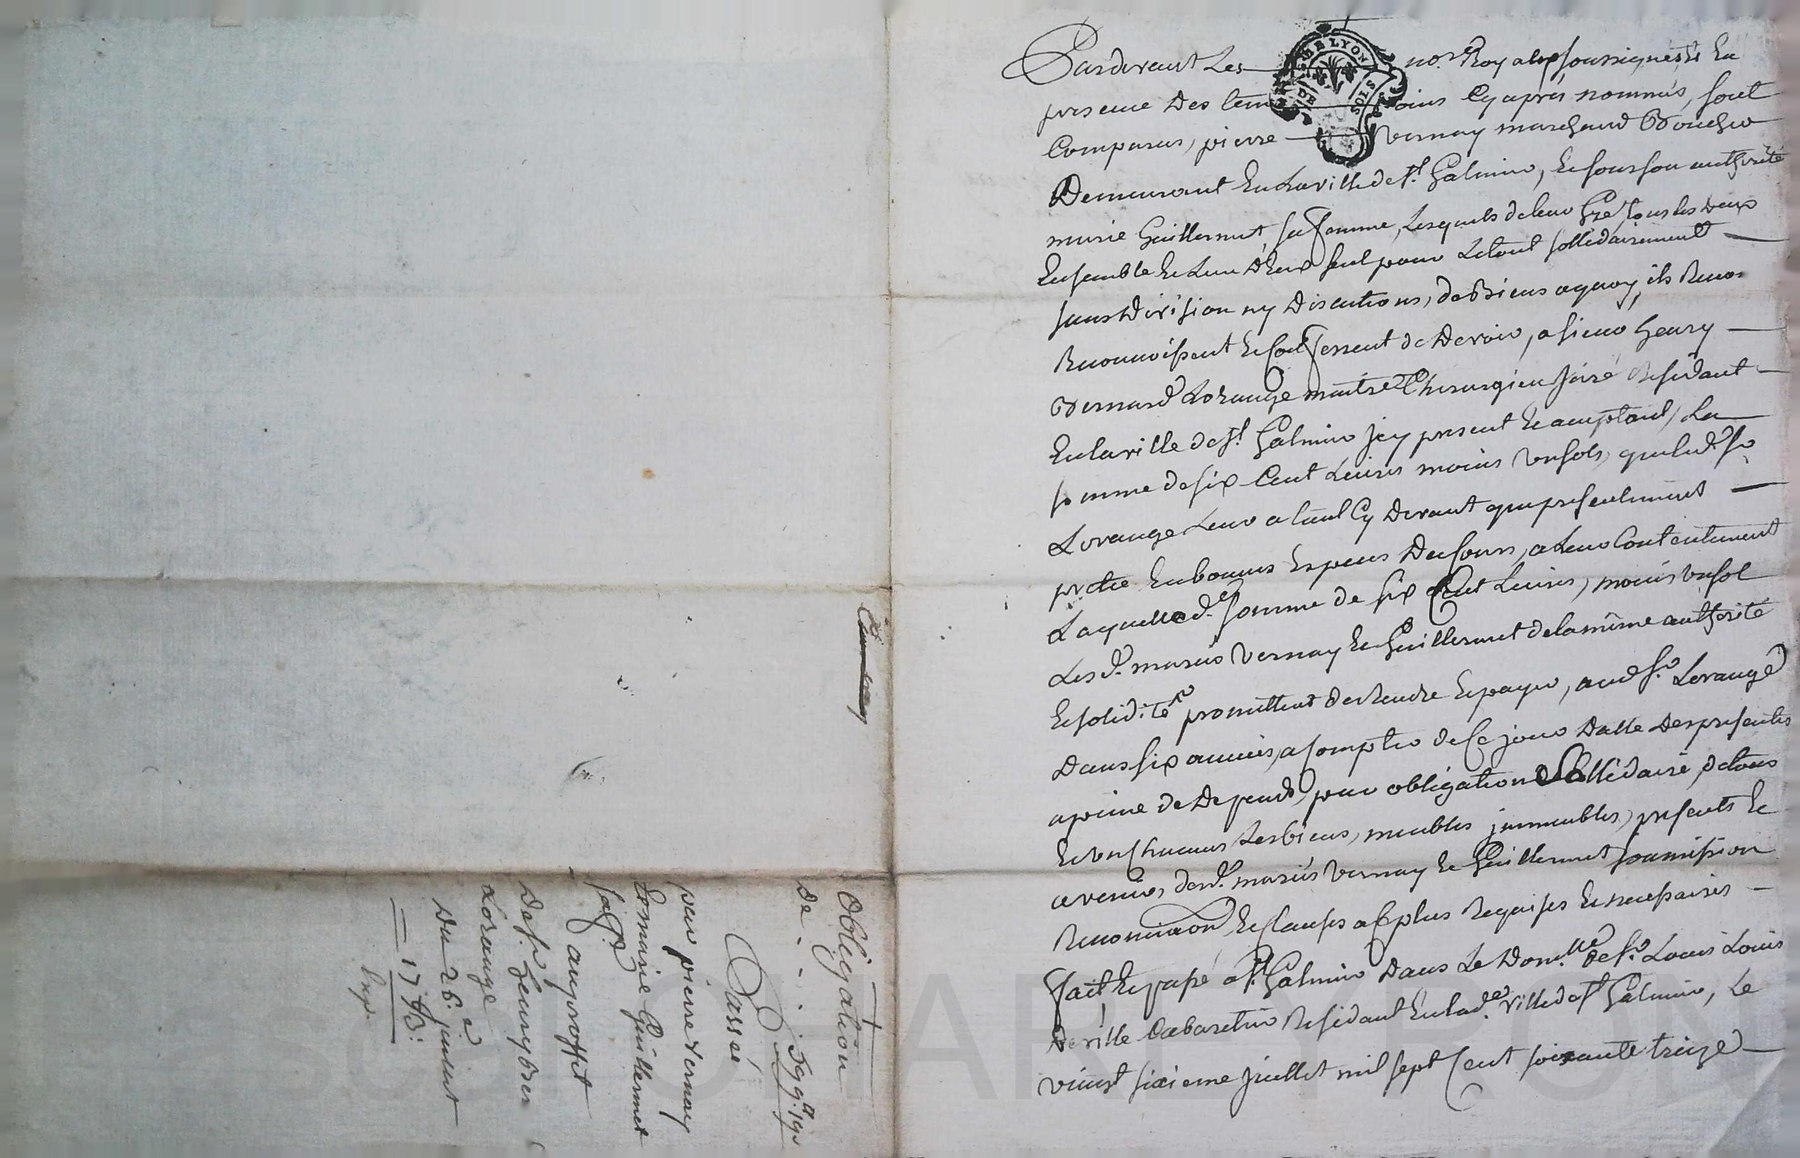 Pardevant Les nore Royal soussigné & En
presence Des temoins Cyaprés nommés, sont
Comparus, pierre Vernay marchand Boucher
Demeurant En La ville de st. Galmier, & sous son authorité
marie Guillermet, sa femme, Lesquels de leur Gré tous les deux
Ensemble & Lun D'Eux seul pour Le tout sollidairement
sans Division ny Discutions, de Biens aquoy, ils Renon
Reconnoissent & confessent de Devoir, a sieur henry
Bernard Lorange maitre Chirurgien Juré Residant
En la ville de st. Galmier Icy present & acceptant, La
somme de six Cent Livres moins un sols, que led. sr.
Lorange Leur a Cy Devant que presentement
preté En bonnes Especes De Cours, a Leur Contentement
Laquelle de. somme de six Cent Livres, moins un sol
Les d. mariés Vernay & Guillermet de la même authorité
& solidité promettent de Rendre & payer, aud. sr. Lorange
Dans six années, a Compter de Ce jour Datte Des presentes
a peine de Depends, pour obligation Sollidaire, de tous
& un Chacuns Les biens, meubles immeubles, presents &
avenir, desd. mariés Vernay & Guillermet soumission
Renonciaon & Clauses a Ce plus Requises & necessaires
fait & passé a st. Galmier Dans Le Domlle de sr. Louis Louis
Deville Cabaretier Residant En lad. ville de st. Galmier, Le
vingt sixieme juillet mil sept Cent soixante treize
DE LYON
SOLS
Obligation
De 599lt 19s
Passée
par pierre Vernay
& marie Guillermet
sa fe.
au proffit
de sr. henry Ber
Lorange
Du 26 juillet
1773
CHARLY